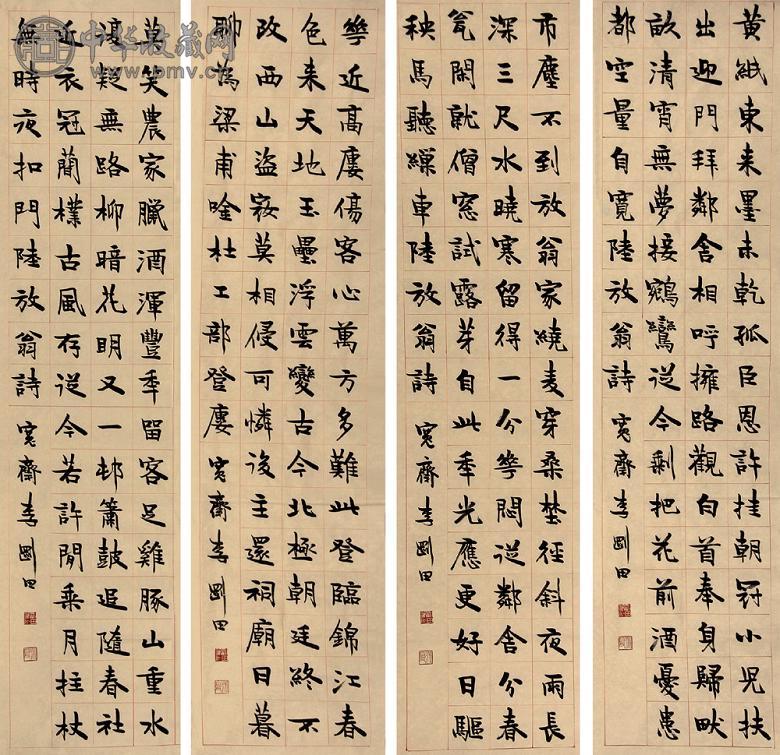 黄紙東来墨未乾孤臣恩許挂朝冠小児扶
出迎門拜鄰舍相呼擁路觀白首奉身歸畎
畝清宵無夢接鵷鸞從今剩把花前酒憂患
都空量自寬陸放翁詩 寬齋李剛田
市塵不到放翁家繞麦穿桑埜徑斜夜雨長
深三尺水曉寒留得一分華悶從鄰舍分春
瓮閑就僧窓試露芽自此年光應更好日驅
秧馬聽繅車陸放翁詩 寬齋李剛田
華近高廔傷客心萬方多難此登臨錦江春
色来天地玉壘浮雲變古今北極朝廷終不
改西山盜寇莫相侵可憐後主還祠廟日暮
聊為梁甫唫杜工部登廔 寬齋李剛田
莫笑農家臘酒渾豐年留客足雞豚山重水
澓疑無路柳暗花明又一邨簫鼓追隨春社
近衣冠簡樸古風存從今若許閒乘月拄杖
無時夜扣門陸放翁詩 寬齋李剛田
中华收藏网
www.pmv.cn